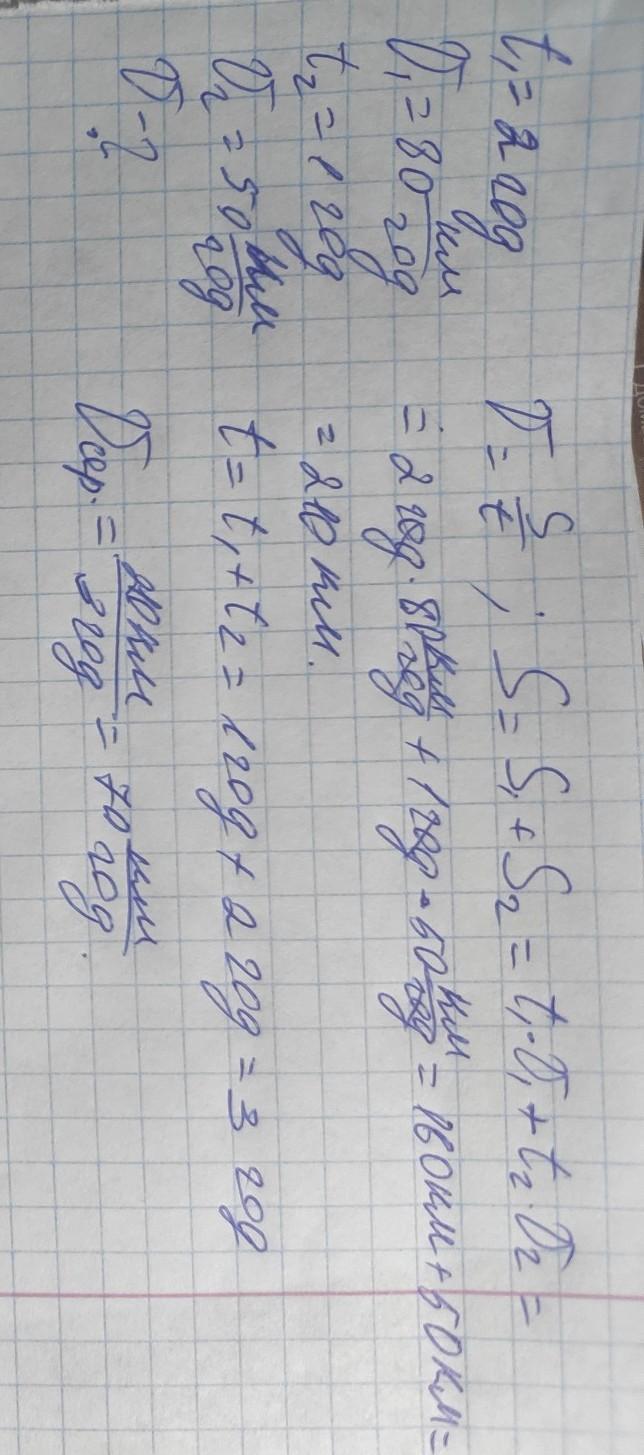 t₁ = 2 год
v₁ = 80 км/год
t₂ = 1 год
v₂ = 50 км/год
v - ?
v = S/t ; S = S₁ + S₂ = t₁·v₁ + t₂·v₂ =
= 2 год · 80 км/год + 1 год · 50 км/год = 160 км + 50 км =
= 210 км.
t = t₁ + t₂ = 1 год + 2 год = 3 год
vсер. = 210 км/3 год = 70 км/год.